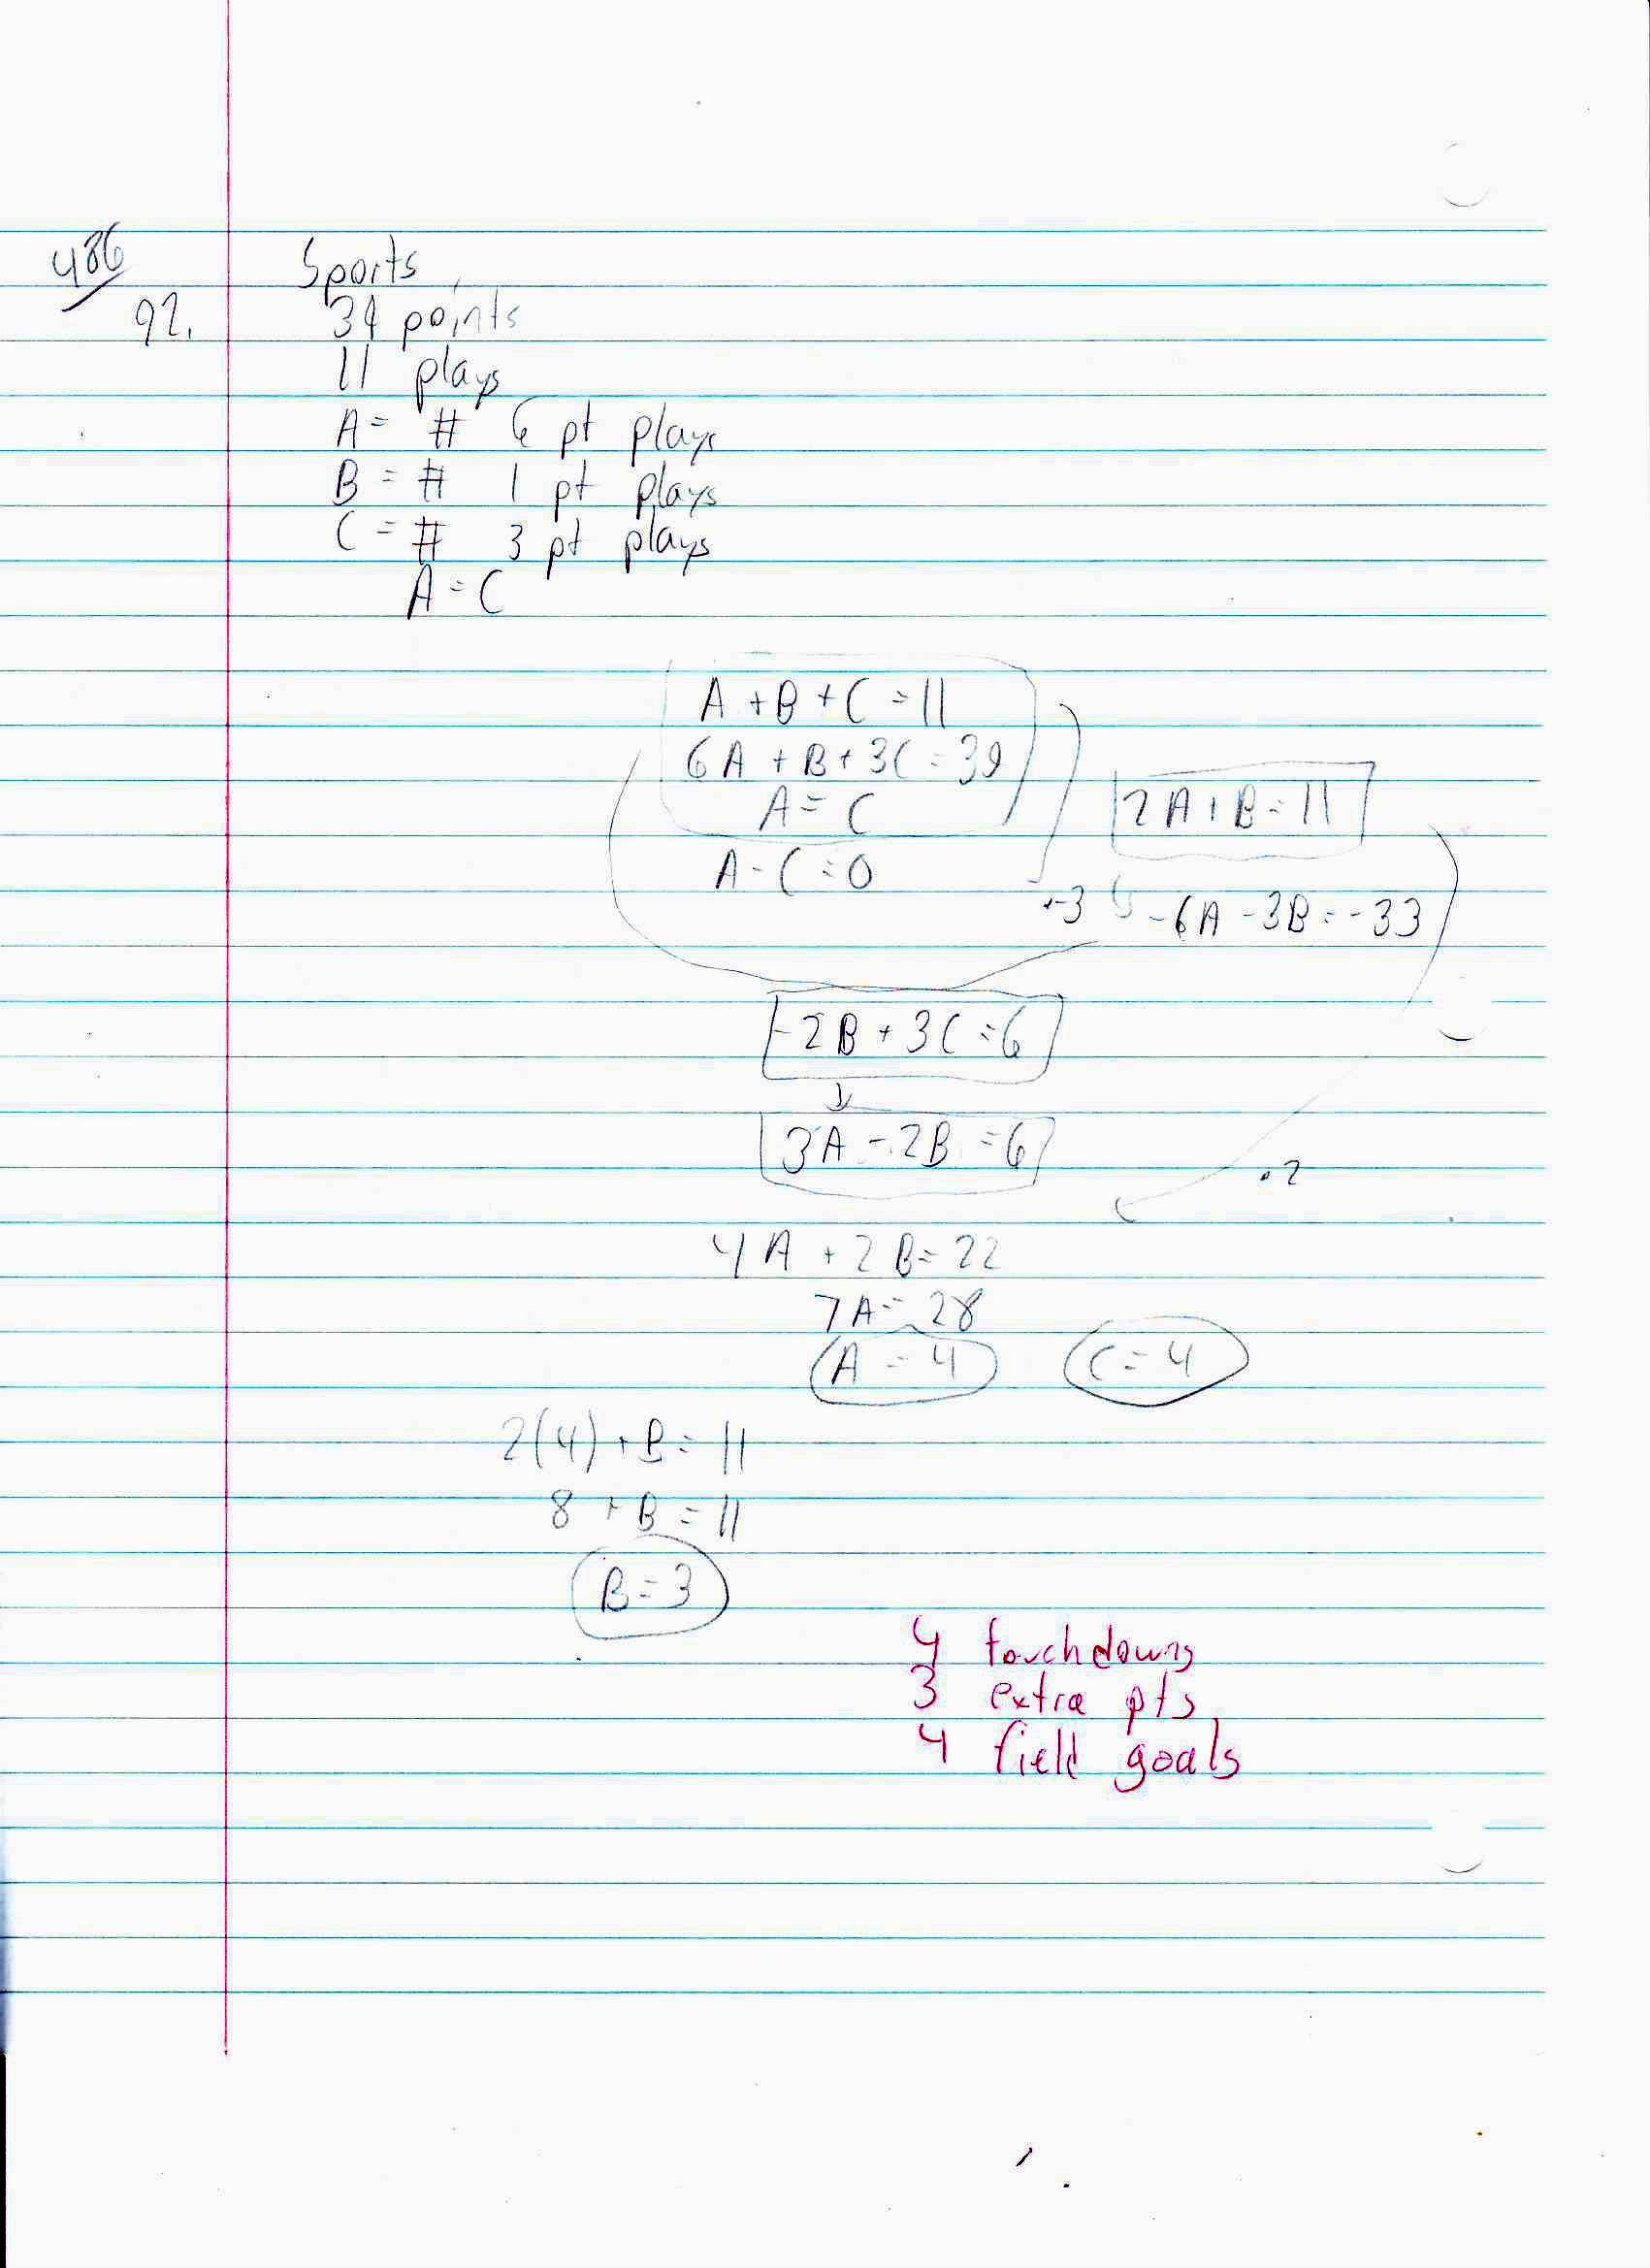 486
92.
Sports
39 points
11 plays
A = # 6 pt plays
B = # 1 pt plays
C = # 3 pt plays
A = C
A + B + C = 11
6A + B + 3C = 39
A = C
A - C = 0
2A + B = 11
·-3 -6A - 3B = -33
-2B + 3C = 6
3A - 2B = 6
·2
4A + 2B = 22
7A = 28
A = 4 C = 4
2(4) + B = 11
8 + B = 11
B = 3
4 touchdowns
3 extra pts
4 field goals